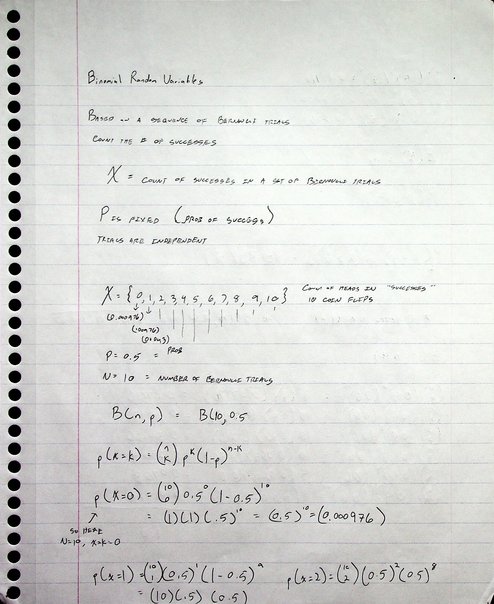 Binomial Random Variables
BASED ON A SEQUENCE OF BERNOULLI TRIALS
COUNT THE # OF SUCCESSES
X = COUNT OF SUCCESSES IN A SET OF BERNOULLI TRIALS
P IS FIXED (PROB OF SUCCESS)
TRIALS ARE INDEPENDENT
X = {0, 1, 2, 3, 4, 5, 6, 7, 8, 9, 10} COUNT OF HEADS IN "SUCCESSES"
10 COIN FLIPS
(0.000976)
(.00976)
(0.043)
P = 0.5 = PROB
N = 10 = NUMBER OF BERNOULLI TRIALS
B(n, p) = B(10, 0.5
p(x=k) = (n k) p^k (1-p)^n-k
p(x=0) = (10 0) 0.5^0 (1-0.5)^10
= (1)(1)(.5)^10 = (0.5)^10 = (0.000976)
SO HERE
N=10, x=k=0
p(x=1) = (10 1)(0.5)^1 (1-0.5)^9 p(x=2) = (10 2)(0.5)^2 (0.5)^8
= (10)(.5) (0.5)